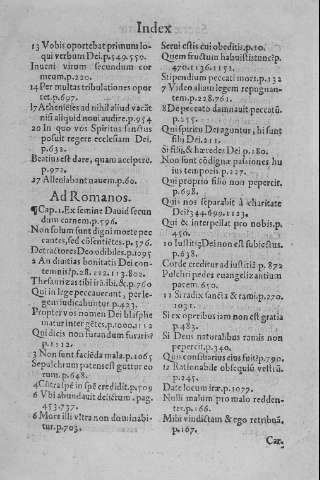 Index
13 Vobis oportebat primum lo-
qui verbum Dei.p.549.550.
Inueni virum secundum cor
meum.p.220.
14 Per multas tribulationes opor
tet.p.697.
17 Athenienses ad nihil aliud vacāt
nisi aliquid noui audire.p.954
20 In quo vos Spiritus sanctus
posuit regere ecclesiam Dei.
p.632.
Beatius est dare, quam accipere.
p.972.
27 Alleuiabant nauem.p.60.
Ad Romanos.
¶Cap.1.Ex semine Dauid secun
dum carnem.p.596.
Non solum sunt digni morte pec
cantes, sed cōsentiētes.p.576.
Detractores Deo odibiles.p.1095
2 An diuitias bonitatis Dei con-
temnis?p.28.122.113.802.
Thesaurizas tibi irā.ibi.&.p.760
Qui in lege peccauerunt, per le-
gem iudicabuntur p.423.
Propter vos nomen Dei blasphe
matur inter gētes.p.1000.1112
Qui dicis non furandum furaris?
p.1112.
3 Non sunt faciēda mala.p.1065
Sepulchrum patens est guttur eo
rum.p.648.
4 Cōtra spē in spē credidit.p.509
6 Vbi abundauit delictum. pag.
453.737.
6 Mors illi vltra non dominabi-
tur.p.703.
Serui estis cui obeditis.p.10.
Quem fructum habuistis tunc?p.
470.1136.1151.
Stipendium peccati mors.p.132
7 Video aliam legem repugnan-
tem.p.228.761.
8 De peccato damnauit peccatū.
p.255.
Qui spiritu Dei aguntur, hi sunt
filij Dei.211.
Si filij, & hæredes Dei p.180.
Non sunt cōdignæ passiones hu
ius temporis p.227.
Qui proprio filio non pepercit.
p.698.
Quis nos separabit à charitate
Dei?344.699.1123.
Qui & interpellat pro nobis.p.
450.
10 Iustitię Dei non est subiectus.
p.638.
Corde creditur ad iustitiā p. 872
Pulchri pedes euangelizantium
pacem. 650.
11 Si radix sancta & rami.p.270.
1031.
Si ex operibus iam non est gratia
p.483.
Si Deus naturalibus ramis non
pepercit.p.340.
Quis consiliarius eius fuit?p.790.
12 Rationabile obsequiū vestrū.
p.245.
Date locum iræ.p.1077.
Nulli malum pro malo redden-
ter.p.166.
Mihi vindictam & ego retribuā.
p.167.
Car.